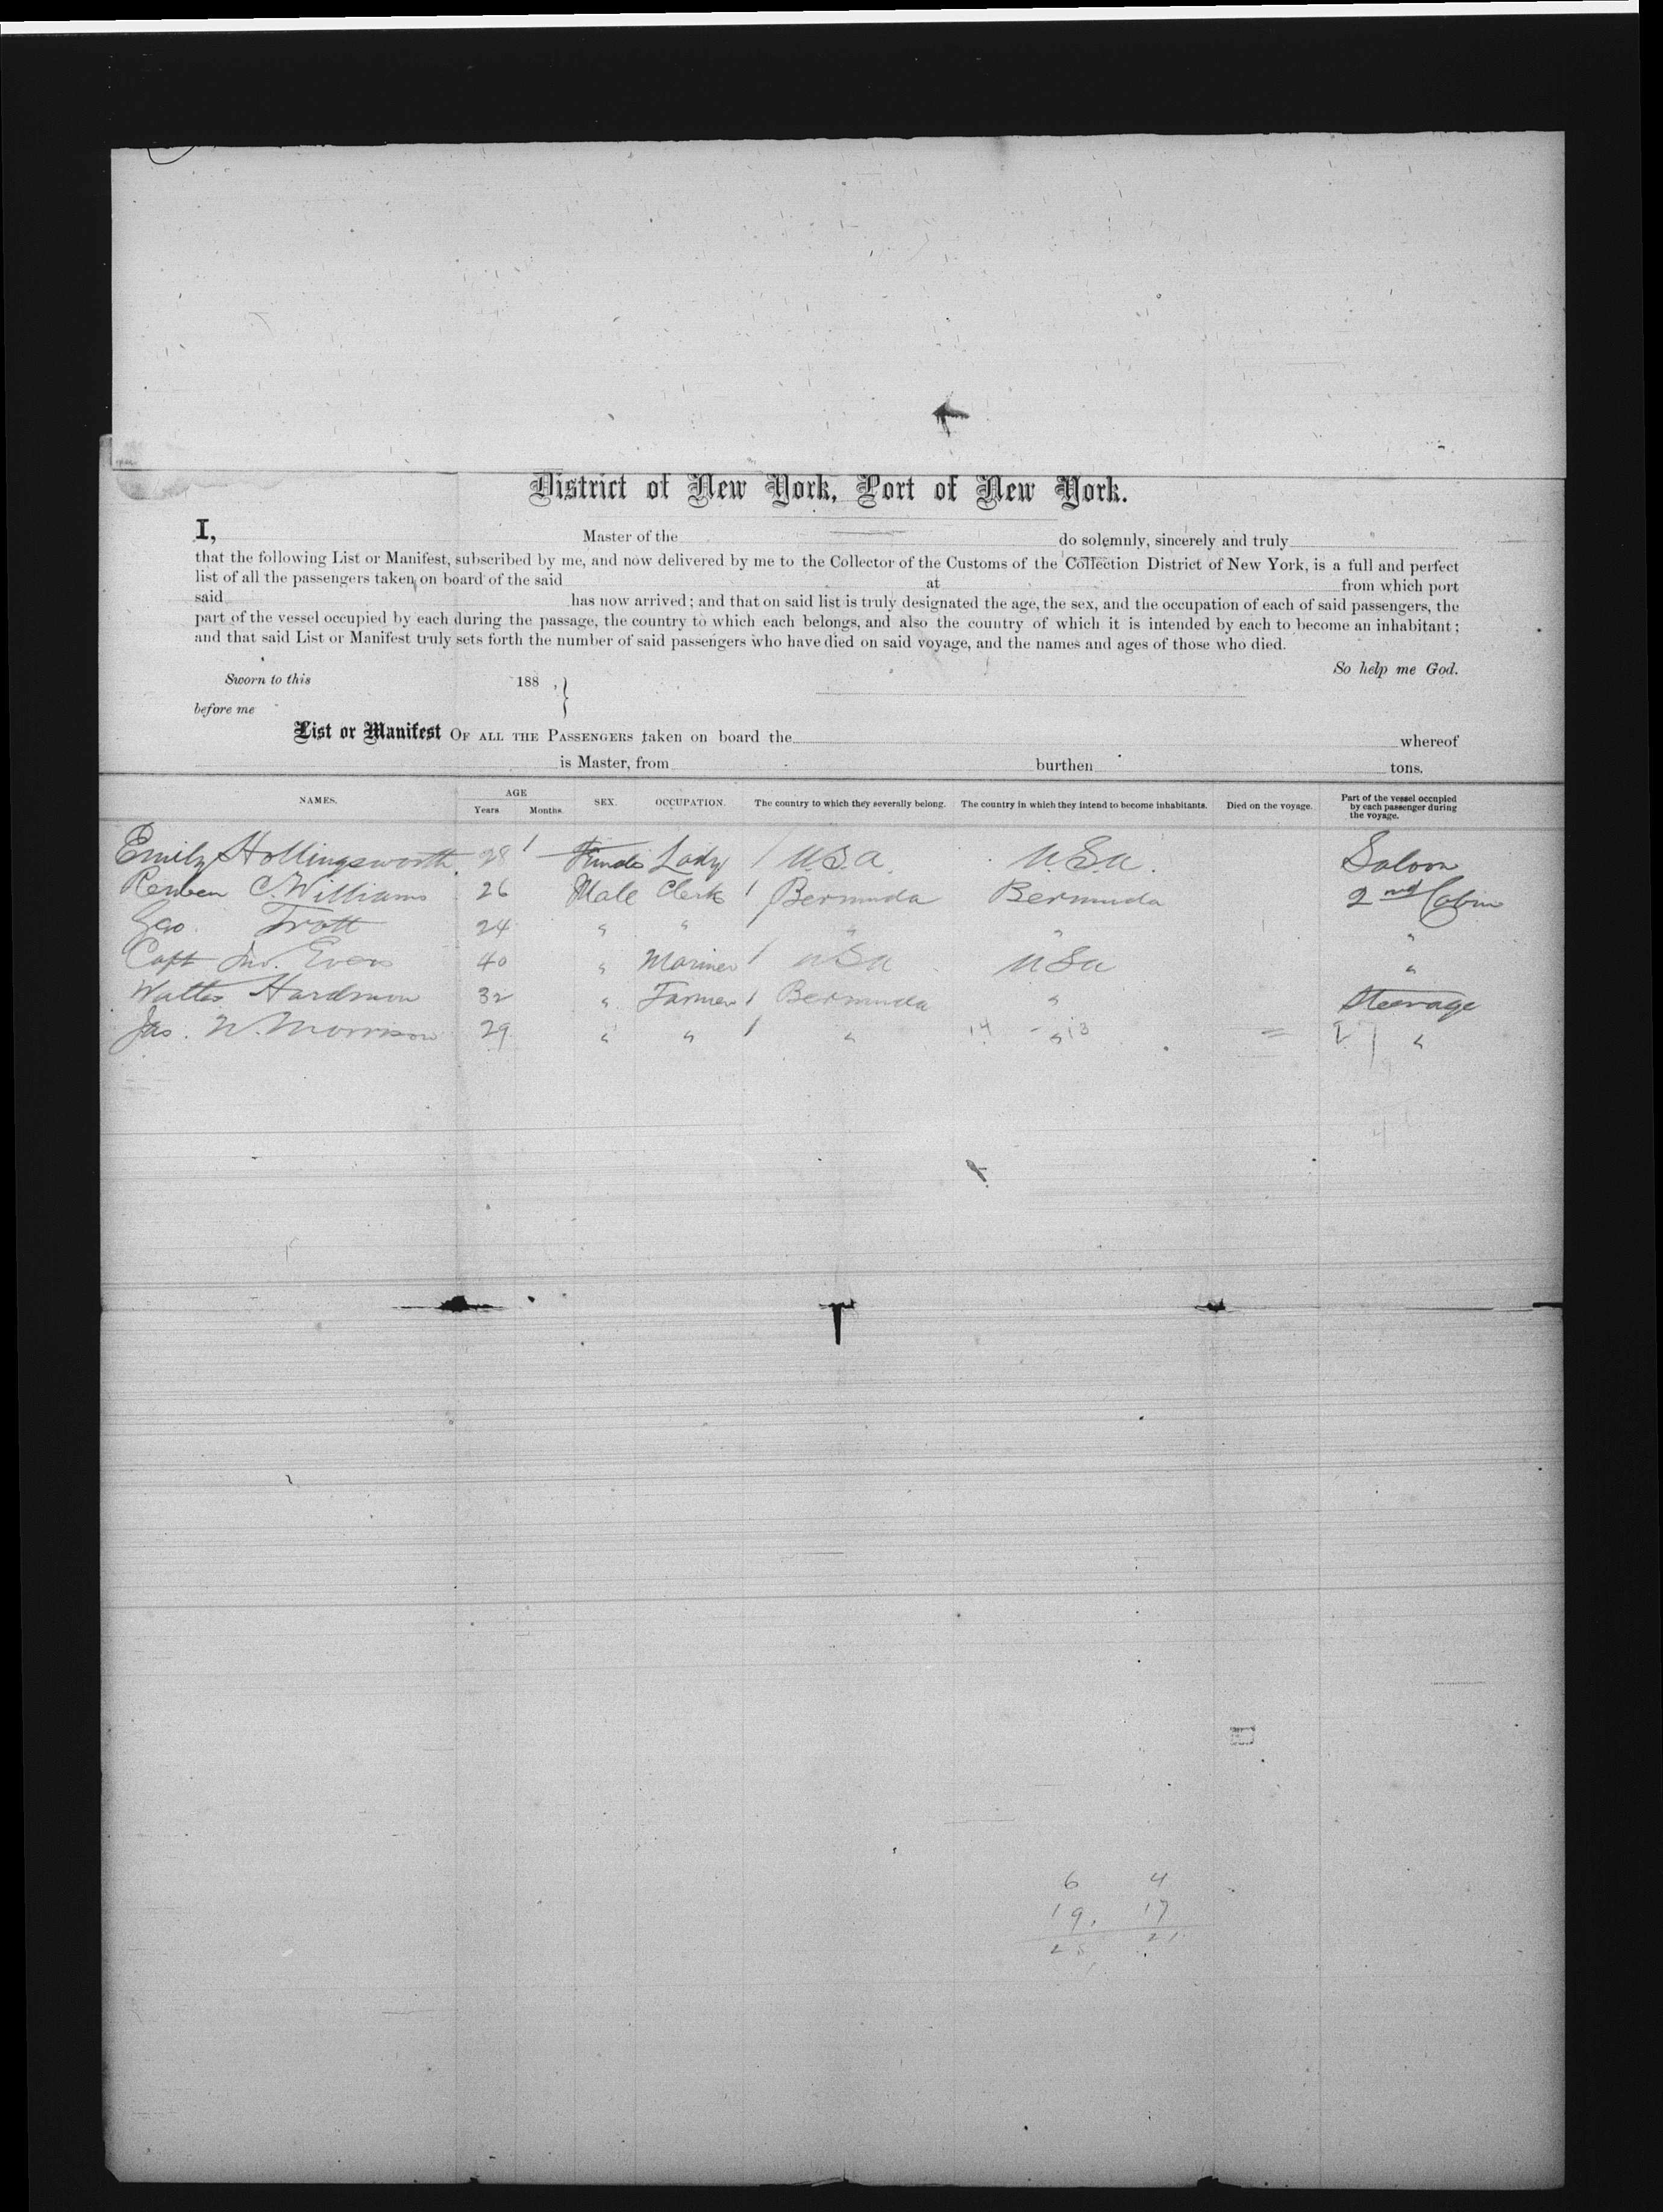 District of New York, Port of New York.
I, Master of the do solemnly, sincerely and truly
that the following List or Manifest, subscribed by me, and now delivered by me to the Collector of the Customs of the Collection District of New York, is a full and perfect
list of all the passengers taken on board of the said at from which port
said has now arrived; and that on said list is truly designated the age, the sex, and the occupation of each of said passengers, the
part of the vessel occupied by each during the passage, the country to which each belongs, and also the country of which it is intended by each to become an inhabitant;
and that said List or Manifest truly sets forth the number of said passengers who have died on said voyage, and the names and ages of those who died.
So help me God.
Sworn to this 188 , }
before me
List or Manifest OF ALL THE PASSENGERS taken on board the whereof
is Master, from burthen tons.
NAMES. AGE Years Months. SEX. OCCUPATION. The country to which they severally belong. The country in which they intend to become inhabitants. Died on the voyage. Part of the vessel occupied by each passenger during the voyage.
Emily Hollingsworth 28 Lady / U.S.A. U.S.A. Saloon
Reuben C. Williams 26 Male Clerk / Bermuda Bermuda 2nd Cabin
Geo. Trott 24 " " " " "
Capt Jno. Evans 40 " Mariner / USA USA "
Walter Hardmon 32 " Farmer / Bermuda " Steerage
Jas. W. Morrison 29 " " / " 14 - " 13 = "
6 4
19. 17
25 21